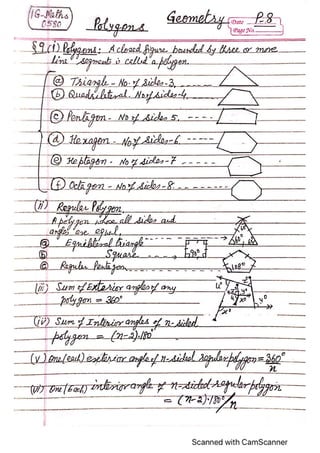 IG-Maths
0580
Polygons
Geometry
Date
P-8
Page No
§9.(i) Polygons: A closed figure bounded by three or more
line segments is called a polygon.
(a) Triangle - No. of Sides-3,
(b) Quadrilateral. No of Sides-4,
(c) Pentagon - No of sides 5,
(d) Hexagon - No of sides-6
(e) Heptagon - No of sides-7
(f) Octagon - No of sides-8
(ii) Regular Polygon.
A polygon whose all sides and
angles are equal,
(a) Equilateral triangle
(b) Square
(c) Regular Pentagon
60°
60°
60°
90°
108°
(iii) Sum of Exterior angles of any
polygon = 360°
x°
y°
(iv) Sum of Interior angles of n-sided
polygon = (n-2).180°
(v) One (each) exterior angle of n-sided regular polygon = 360°/n
(vi) One (each) interior angle of n-sided regular polygon
= (n-2).180°/n
Scanned with CamScanner